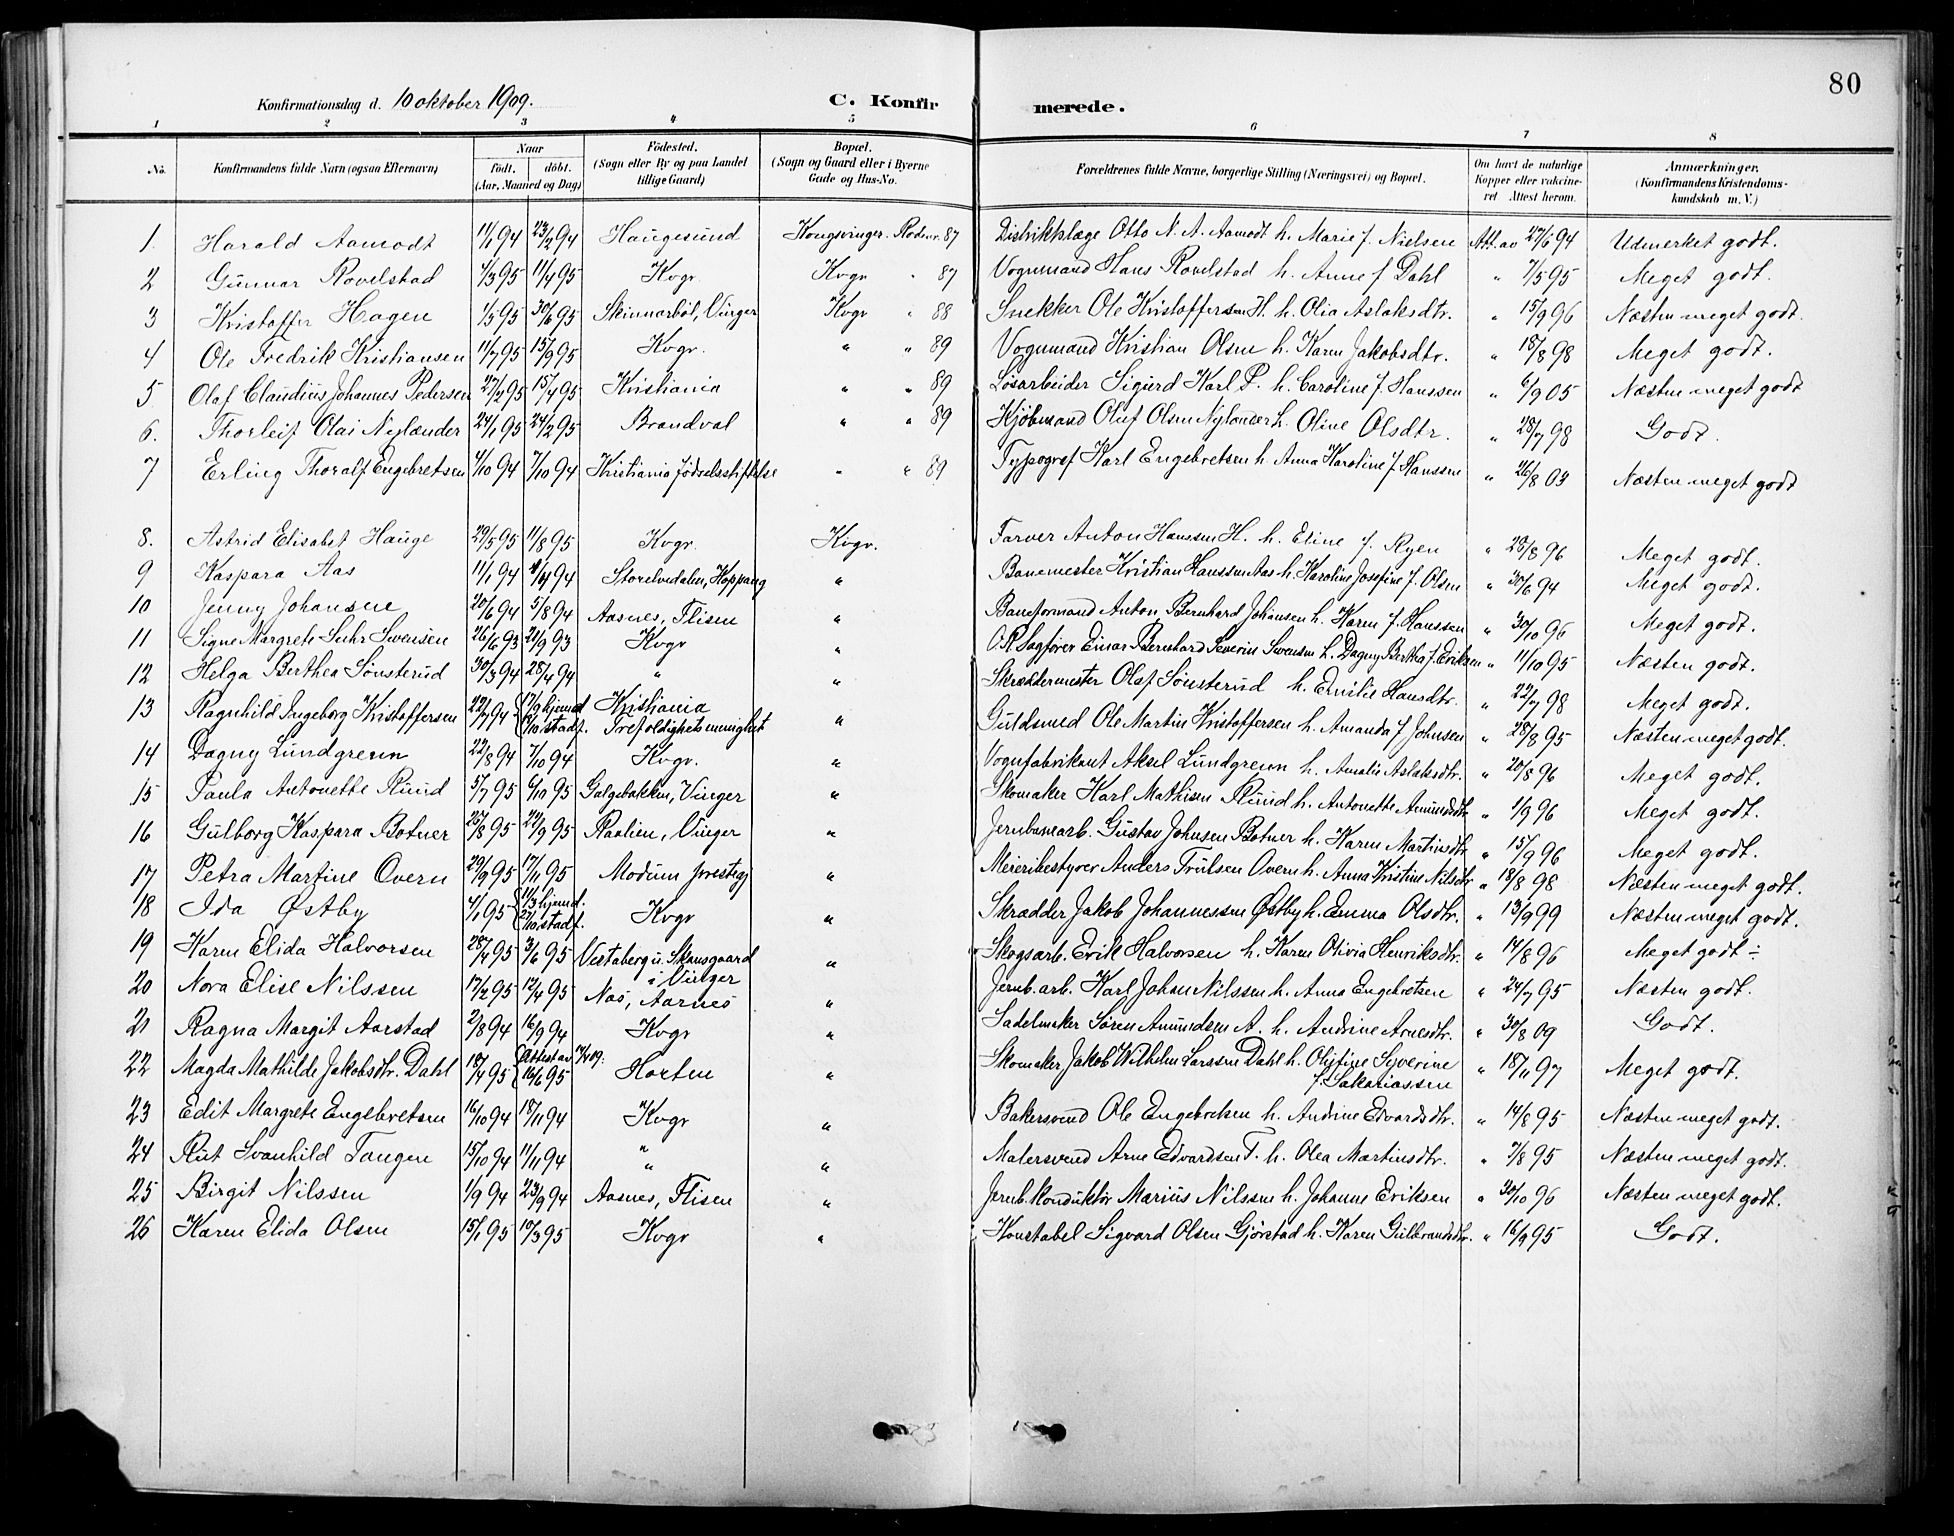 80
Konfirmationsdag d. 10 oktober 1909. C. Konfirmerede.
1 2 3 4 5 6 7 8
No. Konfirmandens fulde Navn (ogsaa Efternavn) Naar födt. döbt. (Aar, Maaned og Dag) Födested. (Sogn eller By og paa Landet tillige Gaard) Bopæl. (Sogn og Gaard eller i Byerne Gade og Hus-No. Forældrenes fulde Navne, borgerlige Stilling (Næringsvei) og Bopæl. Om havt de naturlige Kopper eller vakcineret Attest herom. Anmærkninger. (Konfirmandens Kristendomskundskab m. V.)
1. Harald Aamodt 11/1 94 23/2 94 Haugesund Kongsvinger. Rodenr. 87 Distriktslæge Otto N. A. Aamodt h. Marie f. Nielsen Att. av 27/6 94 Udmerket godt.
2 Gunnar Rovelstad 4/3 95 11/4 95 Kvgr. Kvgr " 87 Vognmand Hans Rovelstad h. Anne f Dahl " 7/5 95 Meget godt.
3 Kristoffer Hagen 1/5 95 30/6 95 Skinnarböl, Vinger Kvgr " 88 Snekker Ole Kristoffersen H. h. Olia Aslaksdtr. " 15/9 96 Næsten meget godt.
4 Ole Fredrik Kristiansen 11/7 95 15/9 95 Kvgr. " " 89 Vognmand Kristian Olsen h. Karen Jakobsdtr. " 18/8 98 Meget godt.
5 Olaf Claudius Johannes Pedersen 27/2 95 15/4 95 Kristiania " " 89 Løsarbeider Sigurd Karl P. h. Caroline f. Hanssen " 6/9 05 Næsten meget godt
6. Thorleif Olai Nylænder 24/1 95 24/2 95 Brandval " " 89 Kjöbmand Oluf Olsen Nylænder h. Oline Olsdtr. " 28/7 98 Godt.
7 Erling Thoralf Engebretsen 4/10 94 7/10 94 Kristiania Födselsstiftelse " " 89 Typograf Karl Engebretsen h. Anna Karoline f. Hanssen " 26/8 03 Næsten meget godt
8. Astrid Elisabet Hauge 29/5 95 11/8 95 Kvgr. Kvgr. Farver Anton Hanssen H. h. Eline f. Ryen " 28/8 96 Meget godt.
9 Kaspara Aas 11/1 94 1/4 94 Storelvedalen, Koppang " Banemester Kristian Hanssen Aas h. Karoline Josefine f. Olsen " 30/6 94 Meget godt.
10 Jenny Johansen 20/6 94 5/8 94 Aasnes, Flisen " Baneformand Anton Bernhard Johansen h. Karen f. Hanssen " 30/10 96 Meget godt.
11 Signe Margrete Suhr Swensen 26/6 93 21/9 93 Kvgr " O.R. Sagfører Einar Bernhard Severin Swensen h. Dagny Bertha f. Eriksen " 11/10 95 Næsten godt.
12 Helga Berthea Sønsterud 30/3 94 28/4 94 " " Skræddermester Olaf Sönsterud h. Emilie Hansdtr. " 22/7 98 Meget godt.
13 Ragnhild Ingeborg Kristoffersen 22/7 94 17/9 hjemd. Kristiania " Guldsmed Ole Martin Kristoffersen h. Amanda f Johnsen " 28/8 95 Næsten meget godt.
/10 stadf. Trefoldighetsmenighet
14 Dagny Lundgreen 22/8 94 7/10 94 Kvgr. " Vognfabrikant Aksel Lundgreen h. Amalie Aslaksdtr. " 20/8 96 Meget godt.
15 Paula Antonette Ruud 5/7 95 6/10 95 Galgebakken, Vinger " Skomaker Karl Mathisen Ruud h. Antonette Amundsdtr " 1/9 96 Meget godt.
16 Gulborg Kaspara Botner 25/8 95 22/9 95 Raalien, Vinger " Jernbanearb. Gustav Johnsen Botner h. Karen Martinsdtr " 15/9 96 Meget godt.
17 Petra Martine Overn 29/9 95 17/11 95 Modum prestegj " Meieribestyrer Anders Trulsen Overn h. Anna Kristine Nilsdtr " 18/8 98 Næsten meget godt.
18 Ida Østby 4/1 95 11/3 hjemd. Kvgr " Skrædder Jakob Johannessen Østby h. Emma Olsdtr. " 13/9 99 Næsten meget godt.
27/10 stadf.
19 Karen Elida Halvorsen 28/4 95 3/6 95 Vestaberg u. Skansgaard " Skogsarb. Erik Halvorsen h. Karen Olivia Henriksdtr. " 14/8 96 Meget godt ÷
i Vinger
20 Nora Elise Nilssen 17/2 95 12/4 95 Nas, Aarnes " Jernb. arb. Karl Johan Nilssen h. Anna Engebretsen " 24/7 95 Næsten godt.
21 Ragna Margit Aarstad 2/8 94 16/9 94 Kvgr " Sadelmaker Søren Amundsen A. h. Andrine Arnesdtr. " 30/8 09 Godt.
22 Magda Mathilde Jakobsdtr. Dahl 18/4 95 Attest av /4 09. 16/6 95 Horten " Skomaker Jakob Wilhelm Larssen Dahl h. Olufine Syverine " 18/11 97 Meget godt.
f. Sakariassen
23 Edit Margrete Engebretsen 16/10 94 18/11 94 Kvgr " Bakersvend Ole Engebretsen h. Andrine Edvardsdtr. " 14/8 95 Næsten meget godt.
24 Rut Svanhild Tangen 15/10 94 11/11 94 " " Malersvend Arne Edvardsen T. h. Olea Martinsdtr. " 7/8 95 Næsten meget godt.
25 Birgit Nilssen 1/9 94 23/9 94 Aasnes, Flisen " Jernb. konduktör Marius Nilssen h. Johanne Eriksen " 30/10 96 Næsten meget godt.
26 Karen Elida Olsen 15/1 95 10/3 95 Kvgr " Konstabel Sigvard Olsen Gjörstad h. Karen Gulbrandsdtr. " 16/9 95 Godt.